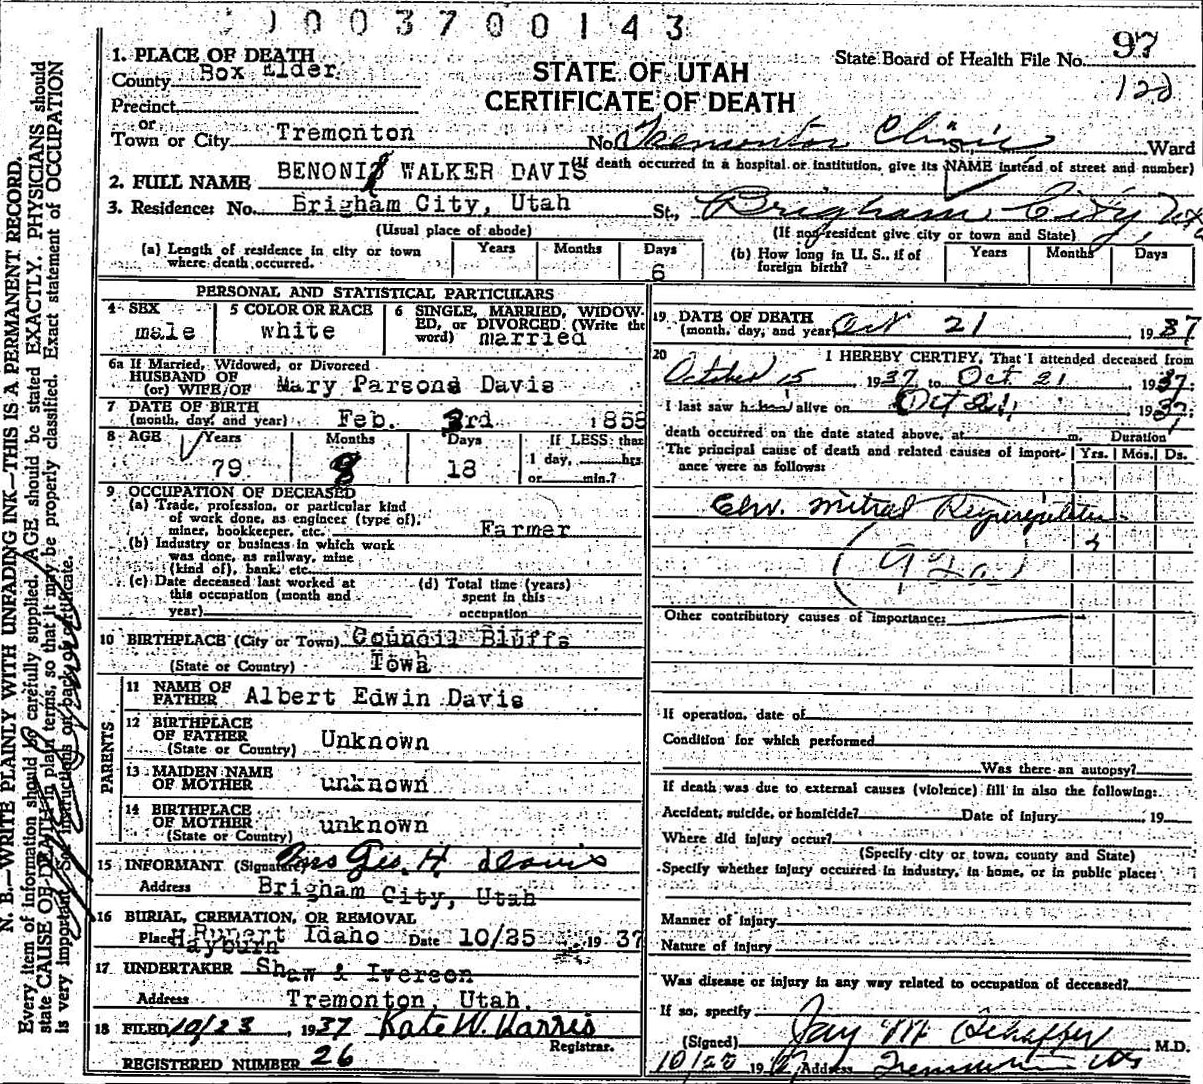 003700143
1. PLACE OF DEATH
County Box Elder
Precinct
or
Town or City Tremonton
STATE OF UTAH
CERTIFICATE OF DEATH
State Board of Health File No. 97
120
No. Tremonton Clinic St., Ward
(If death occurred in a hospital or institution, give its NAME instead of street and number)
2. FULL NAME BENONI WALKER DAVIS
3. Residence: No. Brigham City, Utah St., Brigham City,
(Usual place of abode) (If non-resident give city or town and State)
(a) Length of residence in city or town where death occurred. Years Months Days 6
(b) How long in U. S., if of foreign birth? Years Months Days
PERSONAL AND STATISTICAL PARTICULARS
4 SEX male
5 COLOR OR RACE white
6 SINGLE, MARRIED, WIDOWED, or DIVORCED (Write the word) married
6a If Married, Widowed, or Divorced
HUSBAND OF
(or) WIFE OF Mary Parsons Davis
7 DATE OF BIRTH
(month, day, and year) Feb. 3rd 1858
8 AGE Years 79 Months 8 Days 18
If LESS than 1 day, hrs or min.?
9 OCCUPATION OF DECEASED
(a) Trade, profession, or particular kind
of work done, as engineer (type of),
miner, bookkeeper, etc. Farmer
(b) Industry or business in which work
was done, as railway, mine
(kind of), bank, etc.
(c) Date deceased last worked at
this occupation (month and
year)
(d) Total time (years)
spent in this
occupation
10 BIRTHPLACE (City or Town) Council Bluffs
(State or Country) Iowa
PARENTS
11 NAME OF FATHER Albert Edwin Davis
12 BIRTHPLACE OF FATHER
(State or Country) Unknown
13 MAIDEN NAME OF MOTHER unknown
14 BIRTHPLACE OF MOTHER
(State or Country) unknown
15 INFORMANT (Signature) Mrs Geo. H. Davis
Address Brigham City, Utah
16 BURIAL, CREMATION, OR REMOVAL
Place Rupert Idaho Date 10/25 1937
Hayburn
17 UNDERTAKER Shaw & Iverson
Address Tremonton, Utah.
18 FILED 10/23, 1937 Kate W. Harris
Registrar.
REGISTERED NUMBER 26
19 DATE OF DEATH
(month, day, and year) Oct 21 1937
20 I HEREBY CERTIFY, That I attended deceased from
October 15, 1937 to Oct. 21 1937.
I last saw h alive on Oct 21, 1937,
death occurred on the date stated above, at m. Duration
The principal cause of death and related causes of importance were as follows: Yrs. Mos. Ds.
Chr. mitral Regurgitation
(92a)
Other contributory causes of importance:
If operation, date of
Condition for which performed
Was there an autopsy?
If death was due to external causes (violence) fill in also the following:
Accident, suicide, or homicide? Date of injury , 19
Where did injury occur?
(Specify city or town, county and State)
Specify whether injury occurred in industry, in home, or in public place:
Manner of injury
Nature of injury
Was disease or injury in any way related to occupation of deceased?
If so, specify
(Signed) Jay M Schaffer M.D.
19 Address Tremonton
N. B.—WRITE PLAINLY WITH UNFADING INK—THIS IS A PERMANENT RECORD.
Every item of information should be carefully supplied. AGE should be stated EXACTLY. PHYSICIANS should
state CAUSE OF DEATH in plain terms, so that it may be properly classified. Exact statement of OCCUPATION
is very important. See instructions on back of certificate.